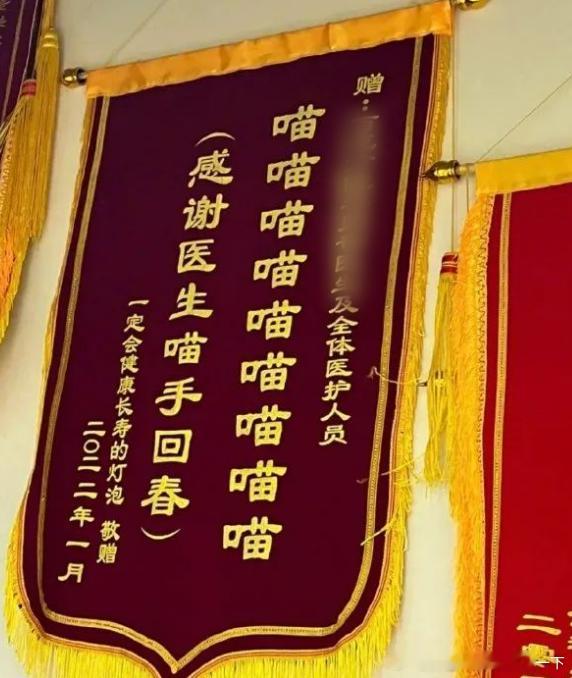 赠：及全体医护人员
喵喵喵喵喵喵喵喵喵
（感谢医生喵手回春）
一定会健康长寿的灯泡 敬赠
二〇二二年一月
二
一下